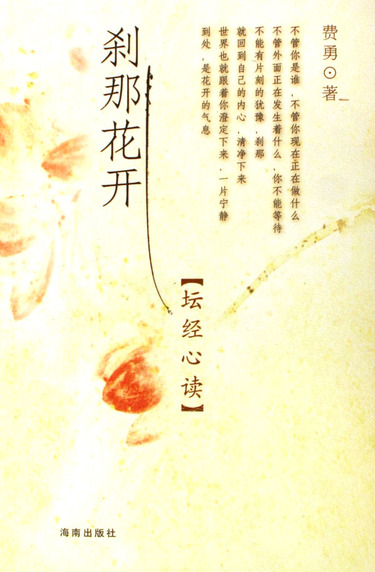 费勇⊙著
不管你是谁，不管你现在正在做什么
不管外面正在发生着什么，你不能等待
不能有片刻的犹豫，刹那
就回到自己的内心，清净下来
世界也就跟着你澄定下来，一片宁静
到处，是花开的气息
刹那花开
【坛经心读】
海南出版社